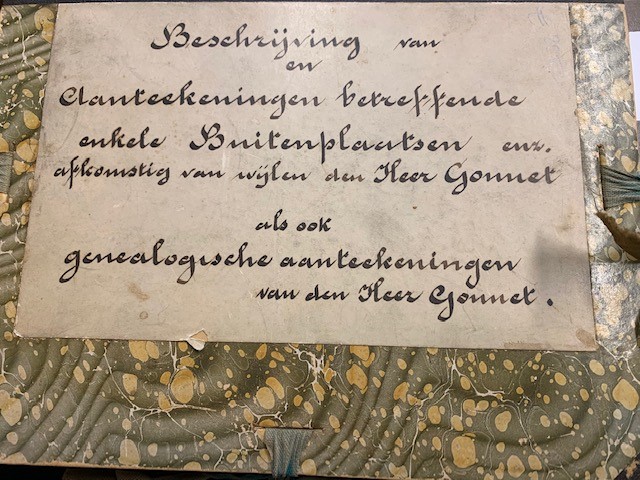 Beschrijving van
en
Aanteekeningen betreffende
enkele Buitenplaatsen enz.
afkomstig van wijlen den Heer Gonnet
als ook
genealogische aanteekeningen
van den Heer Gonnet.